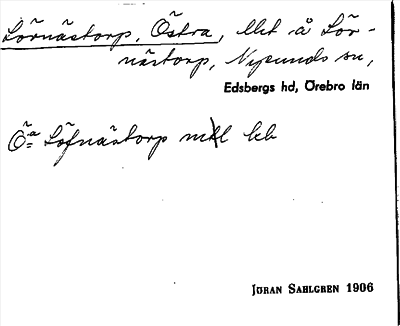 Lörnästorp, Östra, llet å Lör-
nästorp, Nysunds sn,
Edsbergs hd, Örebro län
Ö:a Löfnästorp mtl kb
JÖRAN SAHLGREN 1906